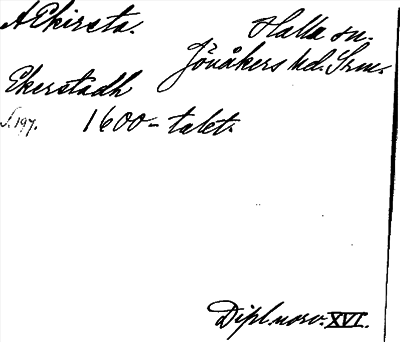 Ekirsta. Halla sn.
Jönåkers hd. Srm.
Ekerstadh
s. 197. 1600-talet.
Dipl. norv. XVI.